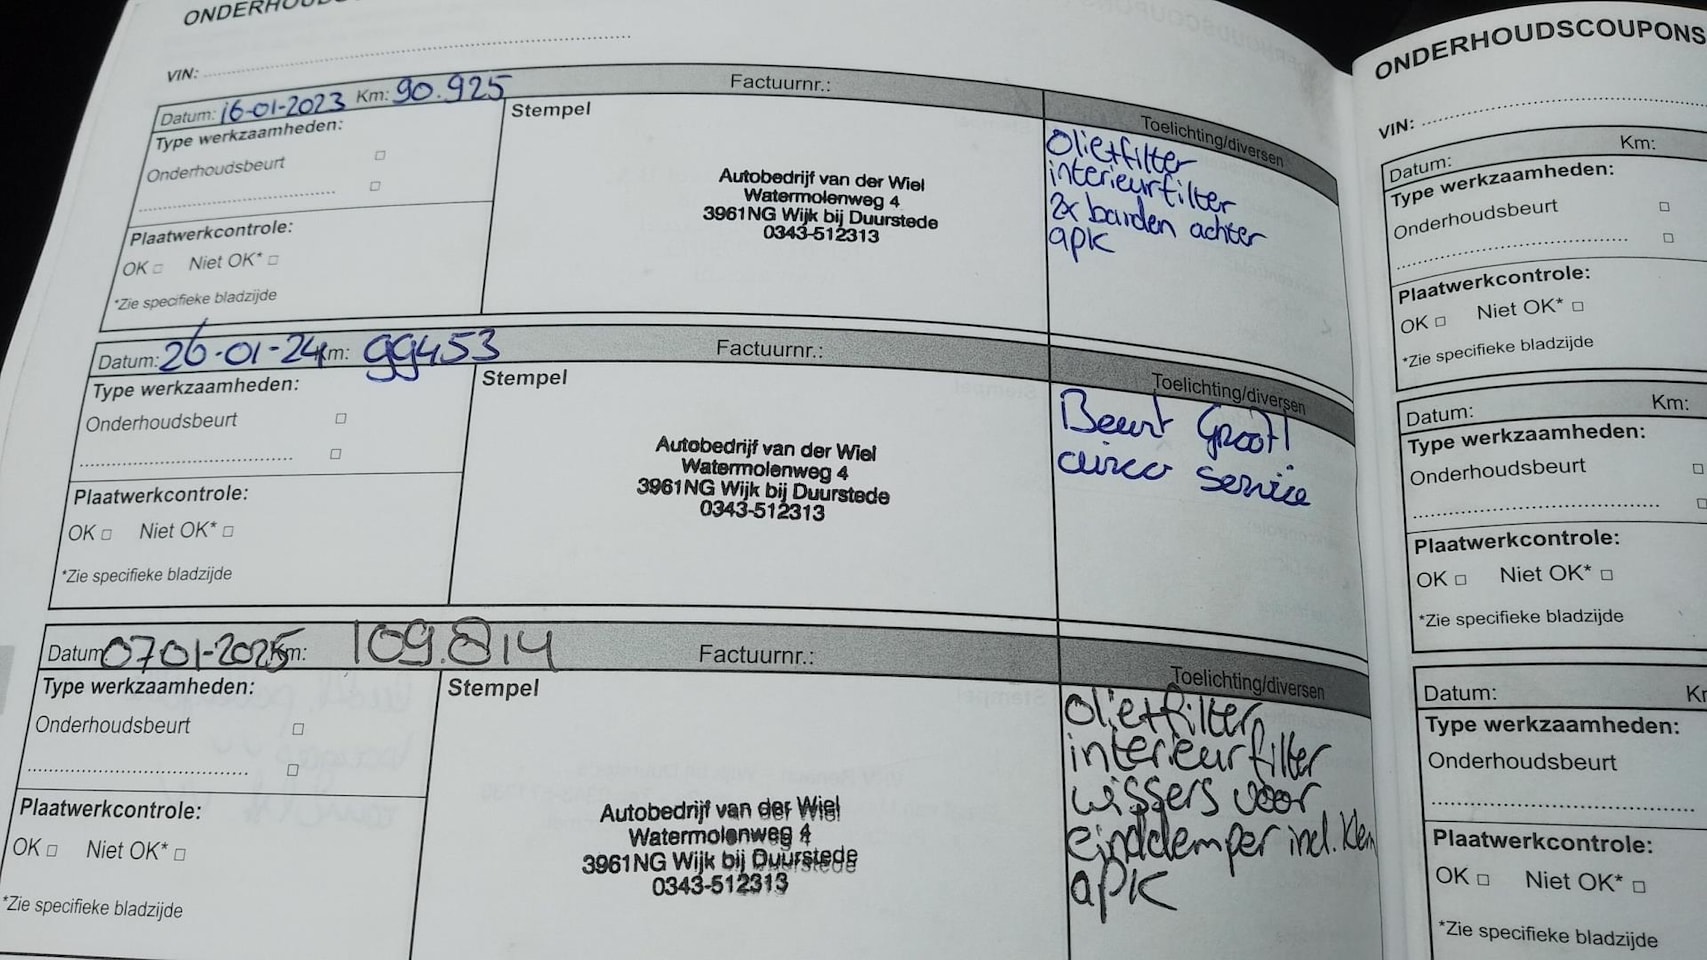 ONDERHOUDSCOUPONS
VIN:
Datum: 16-01-2023 Km: 90.925 Factuurnr.:
Type werkzaamheden:
Onderhoudsbeurt
Plaatwerkcontrole:
OK Niet OK*
*Zie specifieke bladzijde
Stempel
Autobedrijf van der Wiel
Watermolenweg 4
3961NG Wijk bij Duurstede
0343-512313
Toelichting/diversen
olie+filter
interieurfilter
2x banden achter
apk
Datum: 26-01-24 Km: 99453 Factuurnr.:
Type werkzaamheden:
Onderhoudsbeurt
Plaatwerkcontrole:
OK Niet OK*
*Zie specifieke bladzijde
Stempel
Autobedrijf van der Wiel
Watermolenweg 4
3961NG Wijk bij Duurstede
0343-512313
Toelichting/diversen
Beurt Groot!
airco service
Datum 0701-2025 Km: 109.814 Factuurnr.:
Type werkzaamheden:
Onderhoudsbeurt
Plaatwerkcontrole:
OK Niet OK*
*Zie specifieke bladzijde
Stempel
Autobedrijf van der Wiel
Watermolenweg 4
3961NG Wijk bij Duurstede
0343-512313
Toelichting/diversen
olie+filter
interieurfilter
wissers voor
einddemper incl. klem
apk
ONDERHOUDSCOUPONS
VIN:
Datum: Km:
Type werkzaamheden:
Onderhoudsbeurt
Plaatwerkcontrole:
OK Niet OK*
*Zie specifieke bladzijde
Datum: Km:
Type werkzaamheden:
Onderhoudsbeurt
Plaatwerkcontrole:
OK Niet OK*
*Zie specifieke bladzijde
Datum:
Type werkzaamheden:
Onderhoudsbeurt
Plaatwerkcontrole:
OK Niet OK*
*Zie specifieke bladzijde